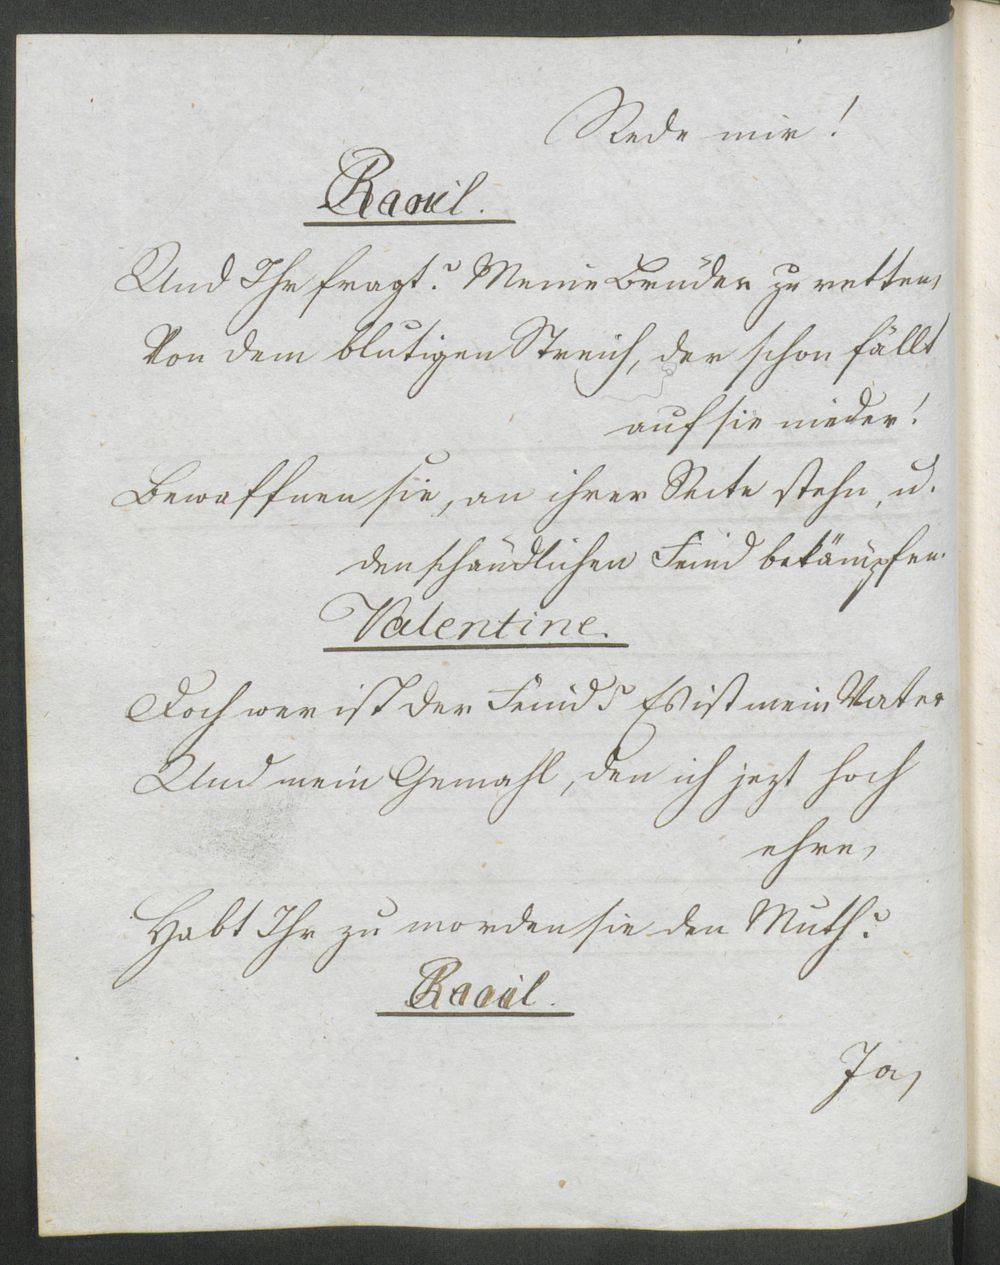 Rede mir!
Raoul.
Und Ihr fragt? Meine Brüder zu retten,
Von dem blutigen Streich, der schon fällt
auf sie nieder!
Bewaffnen sie, an ihrer Seite stehn, u.
den schändlichen Feind bekämpfen.
Valentine.
Doch wer ist der Feind? Es ist mein Vater
Und mein Gemahl, den ich jezt hoch
ehre,
Habt Ihr zu morden sie den Muth?
Raoul.
Ja,